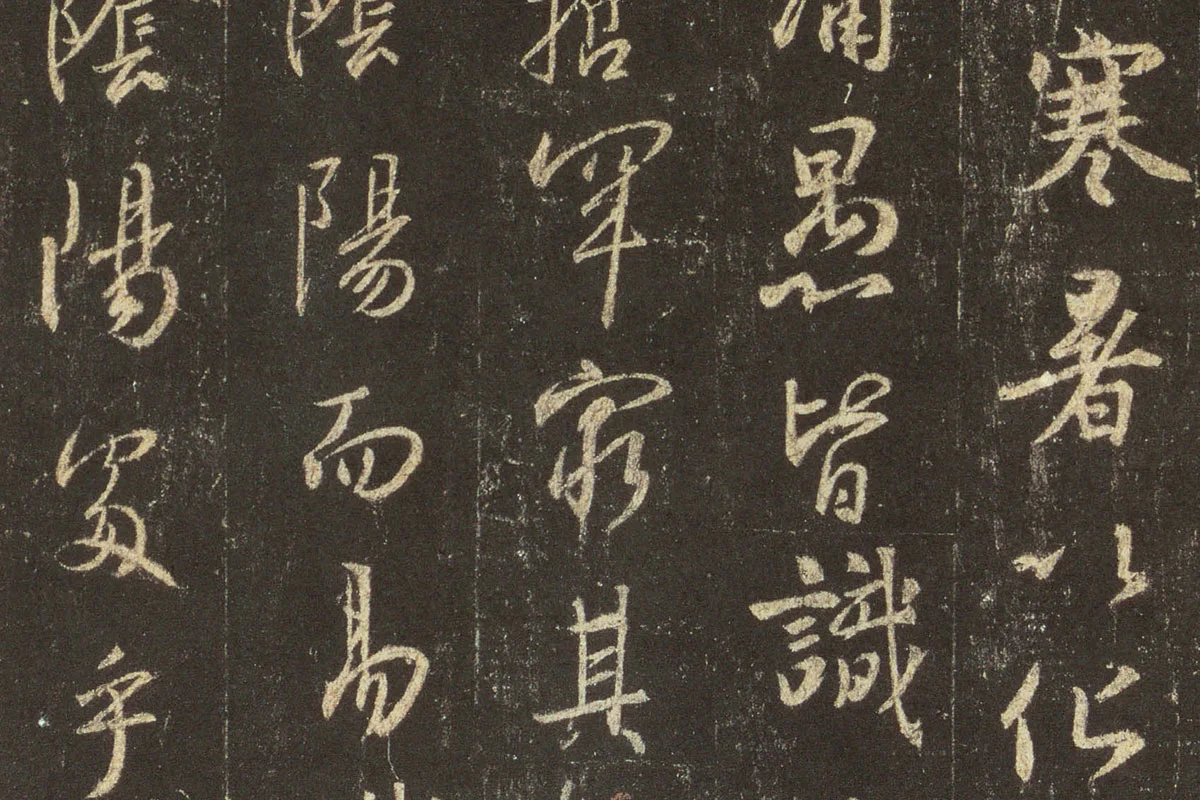 寒暑以化
庸愚皆識
哲罕窮其
陰陽而易
陰陽處乎